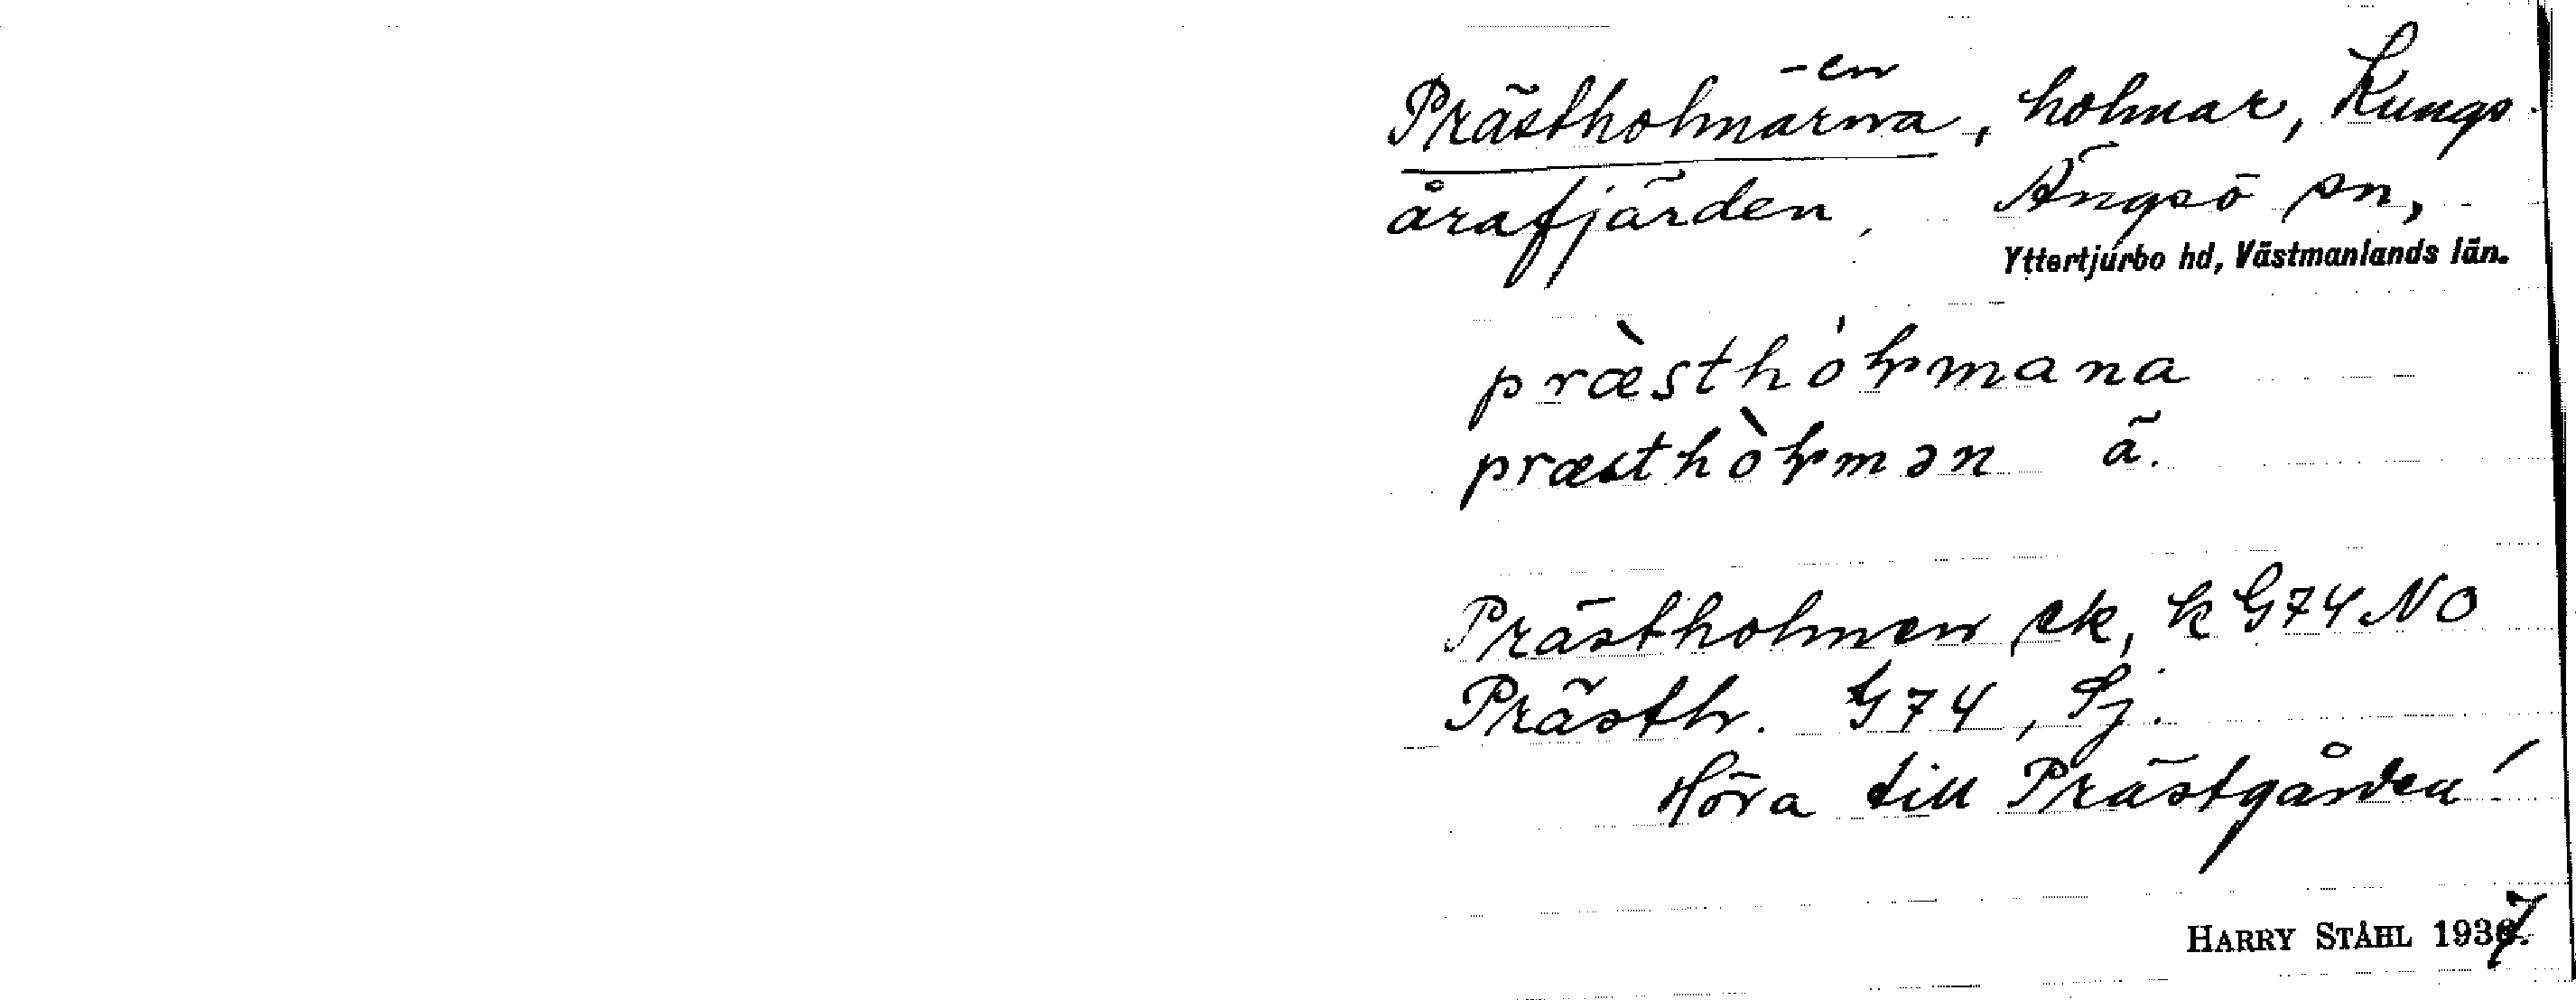 -en
Prästholmarna, holmar, Kungs-
årafjärden, Ängsö sn,
Yttertjurbo hd, Västmanlands län.
præ̀sthóɫmana
præsthòɫmən ä.
Prästholmen ek, k G74 NO
Prästh. G74, Sj.
Höra till Prästgården!
HARRY STÅHL 1937.